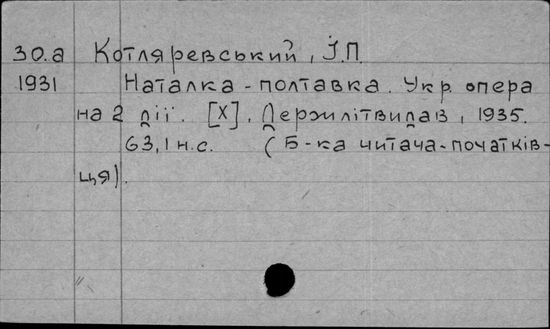 30.а Котляревський, І.П
1931 Наталка-полтавка. Укр. опера
на 2 дії. [Х], Держлітвидав, 1935.
63,1 н.с. (Б-ка читача-початків-
ця).